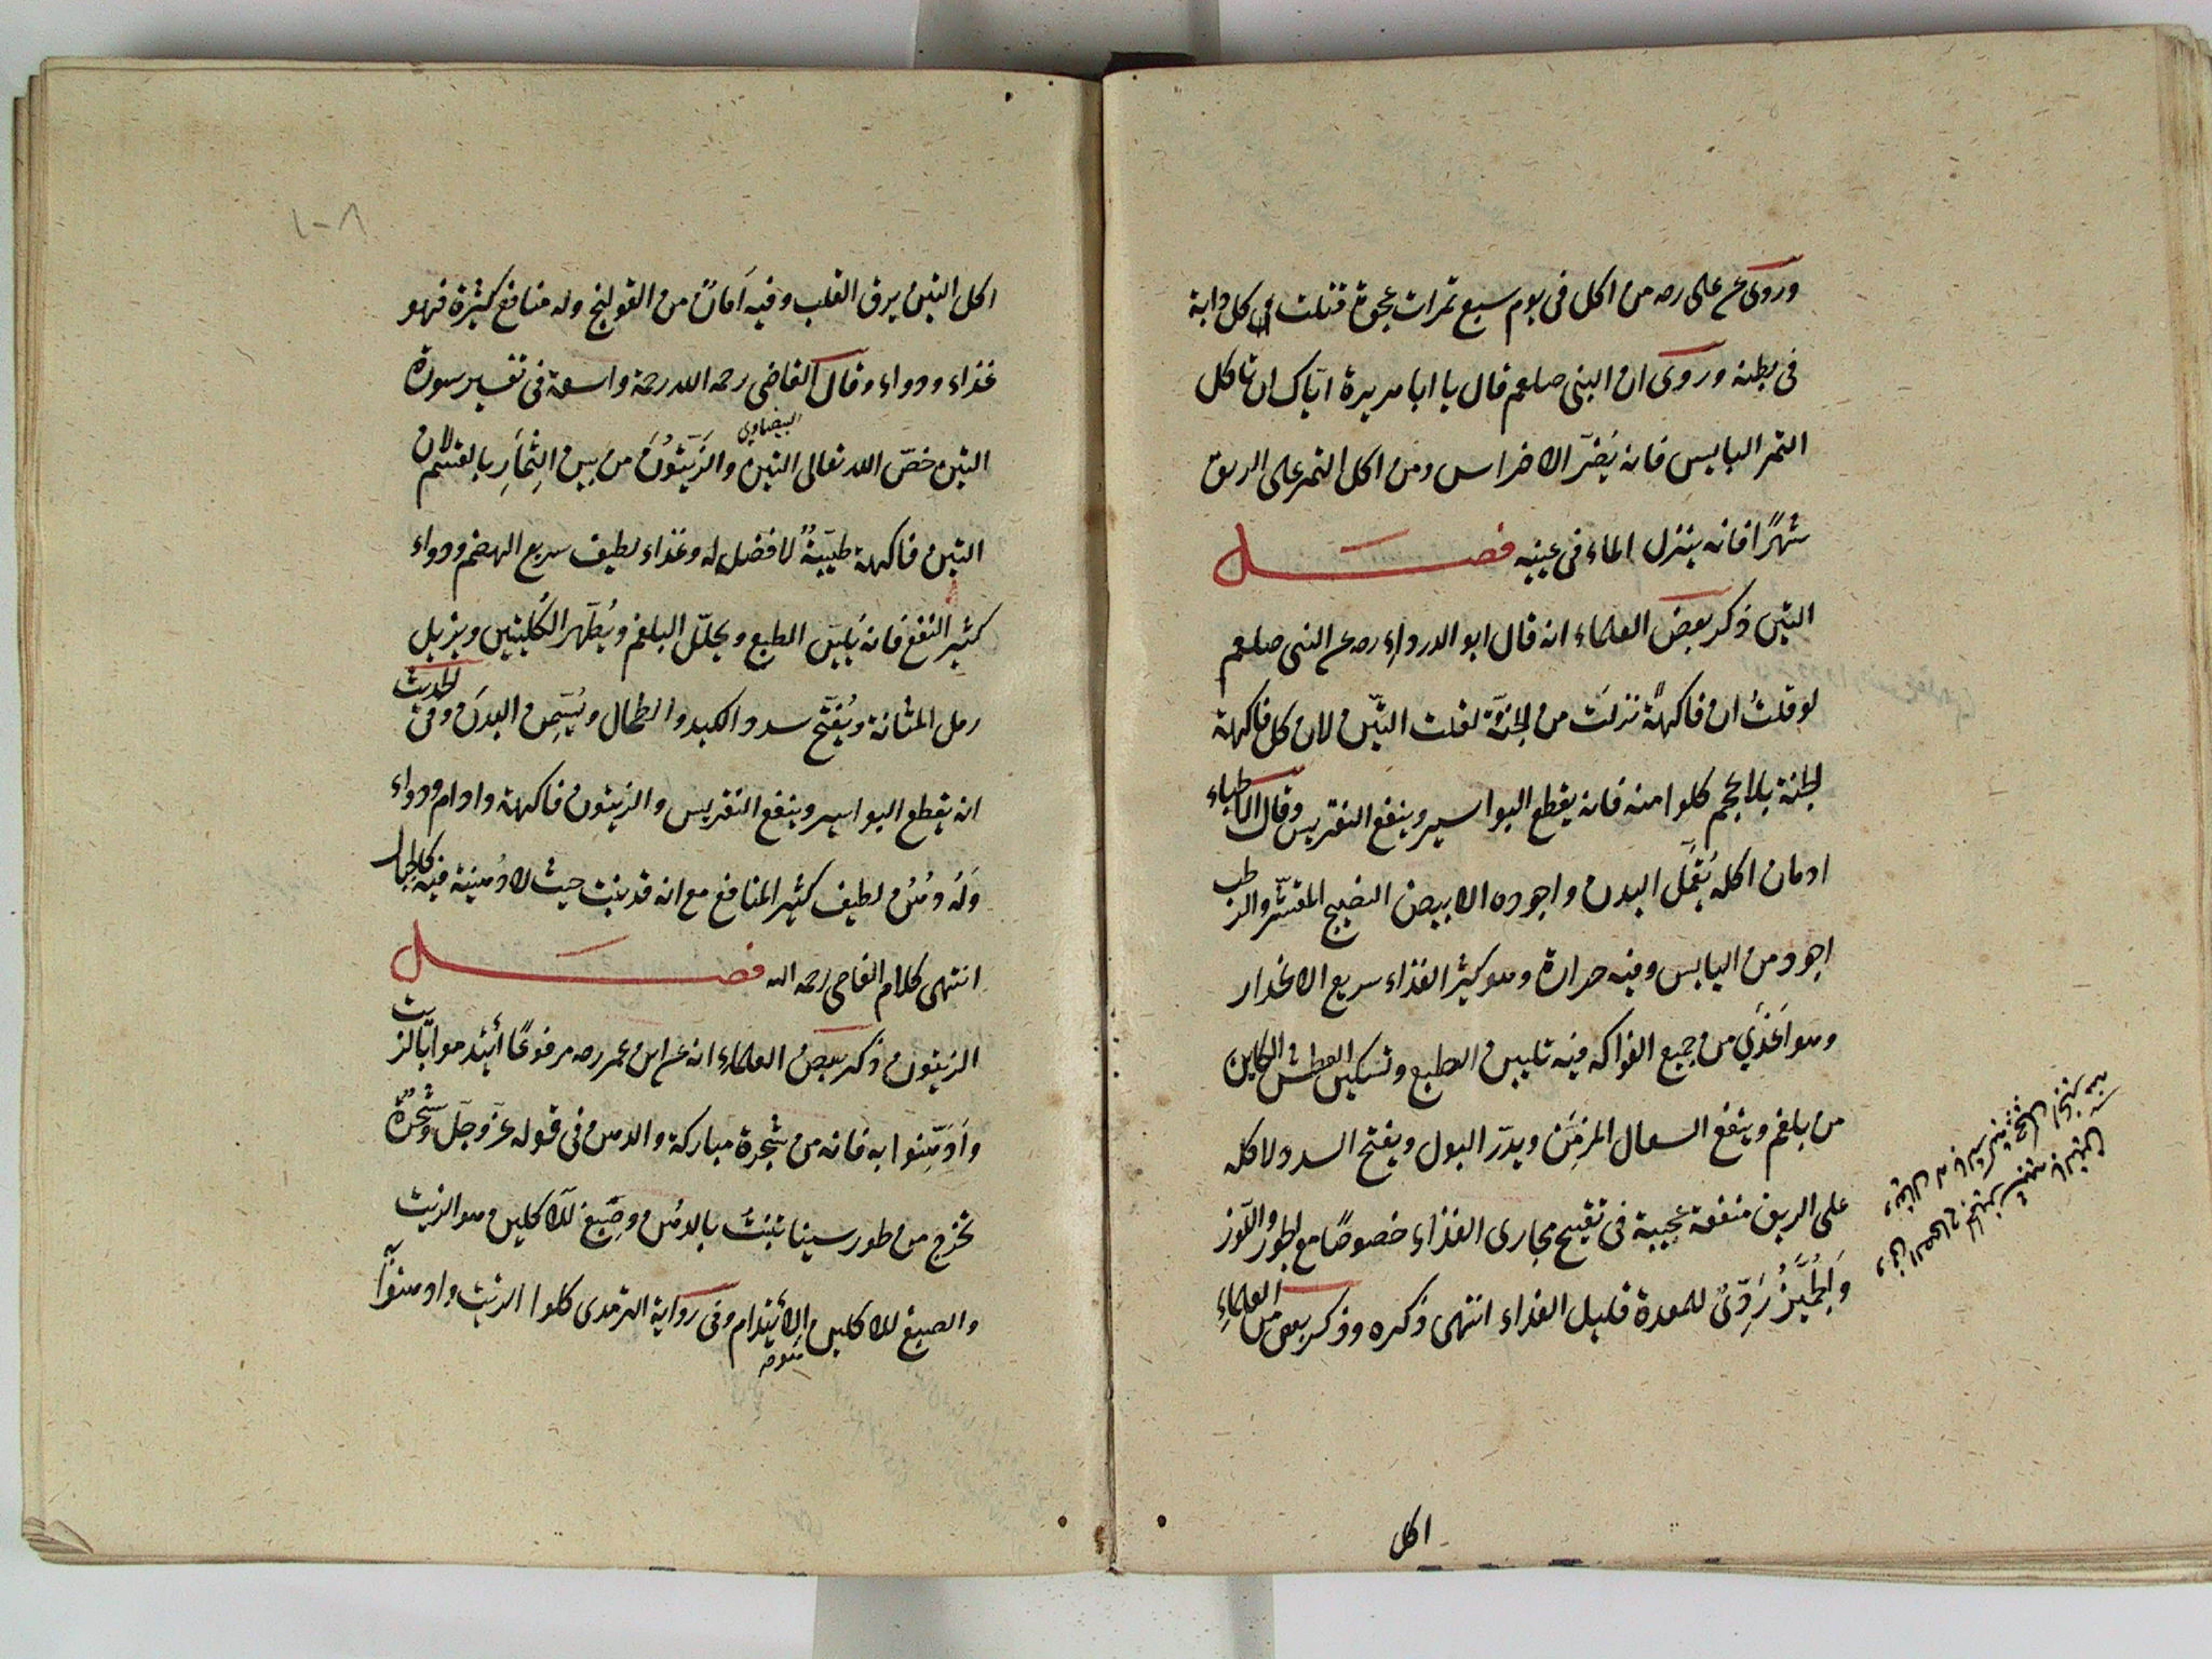 وروى عن على رضه من اكل فى يوم سبع تمرات عجوة قتلت كل دابة
فى بطنه وروى ان النبى صلعم قال يا ابا هريرة اياك ان تاكل
التمر اليابس فانه يُضرّ الاضراس ومن اكل التمر على الريق
شهرًا فانه ينزل الماء فى عينيه فصــل
التين ذكر بعض العلماء انه قال ابو الدرداء رضه عن النبى صلعم
لو قلتُ ان فاكهةً نزلَت من الجنّة لقلت التيّن لان كل فاكهة
الجنة بلا عجم كلوا منه فانه يقطع البواسير وينفع النقريس وقال الاطباء
ادمان اكله يُقمّل البدن واجوده الابيض النضيج المقشّر والرطب
اجود من اليابس وفيه حرارة وهو كثير الغذاء سريع الانحدار
وهو اَغذَى من جميع الفواكه فيه تليين الطبع وتسكين العطش الكاين
من بلغم وينفع السعال المزمَن ويدرّ البول ويفتح السدد ولاكله
على الريق منفعة عجيبة فى تفتيح مجارى الغذاء خصوصًا مع الجوز واللّوز
وَالجُمَّيزُ رَدِّىٌ للمعدة قليل الغذاء انتهى ذكره وذكر بعض من العلماءِ
اكل
١٠٨
اكل التين يرق القلب وفيه اَمانٌ من القولنج وله منافع كثيرة فهو
غذاء ودواء وقال القاضى رحمه الله رحمة واسعة فى تفسير سورة
البيضاوى
التين خصّ الله تعالى التين والزَيّتوُنَ من بين الثِمَارِ بالقسَم لان
التين فاكهة طيّبةٌ لا فضل له وغذاء لطيف سريع الهضم ودواء
كثير النفع فانه يُليّن الطبع ويحلّل البلغم ويُطهّر الكُليتين ويزيل
رمل المثانة ويُفتّح سدد الكبد والطحال ويُسّمِن البدنَ وفى الحديث
انه يقطع البواسير وينفع النقريس والزيتون فاكهة وادام ودواء
وَله دُهنٌ لطيف كثير المنافع مع انه قد ينبت حيث لا دُهنية فيه كالجبال
انتهى كلام القاضى رحمه الله فصــل
الزيتون ذكر بعض العلماء انه عن ابن عمر رضه مرفوعًا أيتدموا بالزيت
وَادّهِنوا به فانه من شجرة مباركة والدهن فى قوله عزّ وجلّ وشجرةٌ
تخرج من طور سينا تنبُتُ بالدهُن وصِبّغٍ للآكلين هو الزيت
والصبغ للآكلين الأيتدام وفى رواية الترمذى كلوا الزيت وادهنوا